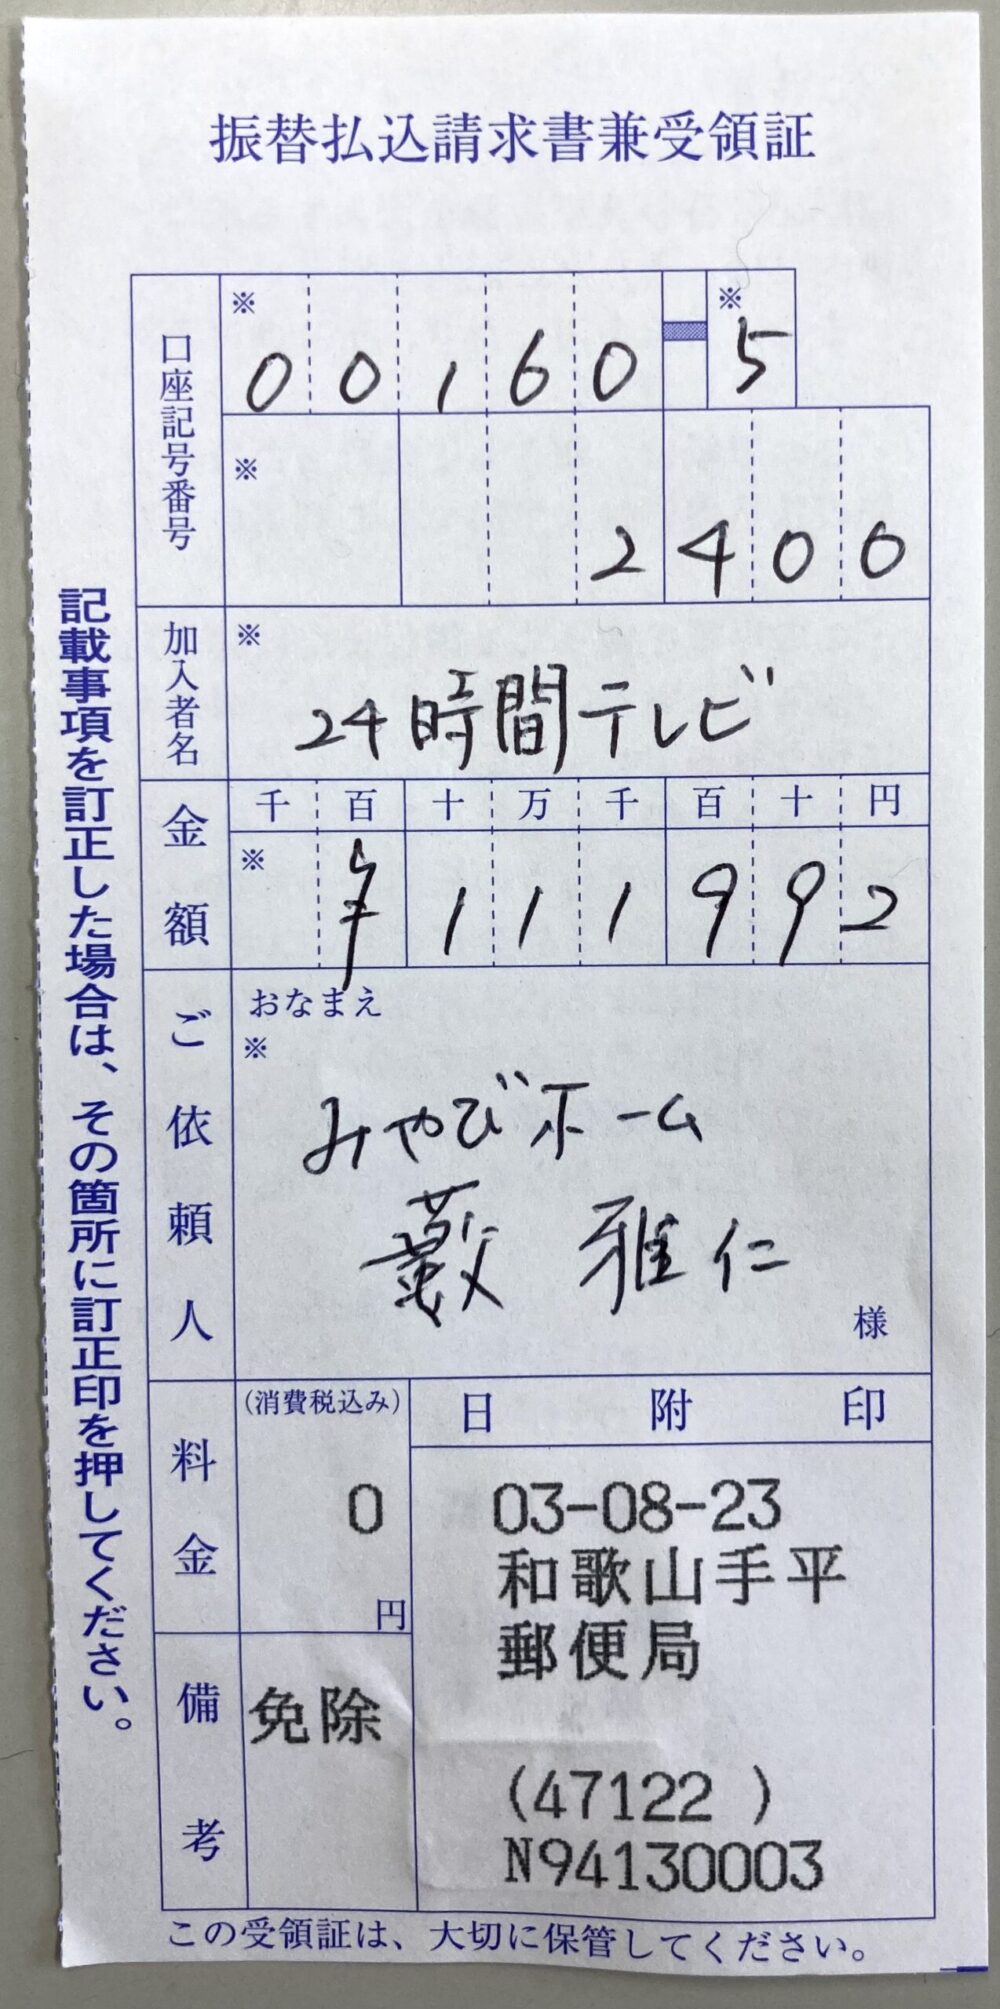 振替払込請求書兼受領証
口座記号番号
※ 00160-※5
※ 2400
加入者名
※ 24時間テレビ
金額
千 百 十 万 千 百 十 円
※ ¥111992
ご依頼人
おなまえ
※
みやびホーム
藪 雅仁
様
料金
(消費税込み)
0
円
日附印
03-08-23
和歌山手平
郵便局
(47122 )
N94130003
備考
免除
この受領証は、大切に保管してください。
記載事項を訂正した場合は、その箇所に訂正印を押してください。